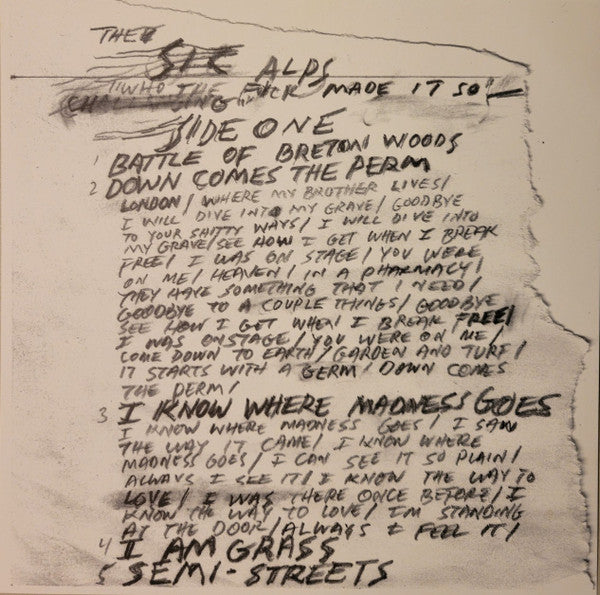 THE
SIC ALPS
"WHO THE FUCK MADE IT SO"
SIDE ONE
1 BATTLE OF BRETON WOODS
2 DOWN COMES THE PERM
LONDON/ WHERE MY BROTHER LIVES/
I WILL DIVE INTO MY GRAVE/ GOODBYE
TO YOUR SHITTY WAYS/ I WILL DIVE INTO
MY GRAVE/ SEE HOW I GET WHEN I BREAK
FREE/ I WAS ON STAGE/ YOU WERE
ON ME/ HEAVEN/ IN A PHARMACY/
THEY HAVE SOMETHING THAT I NEED/
GOODBYE TO A COUPLE THINGS/ GOODBYE
SEE HOW I GET WHEN I BREAK FREE/
I WAS ONSTAGE/ YOU WERE ON ME/
COME DOWN TO EARTH/ GARDEN AND TURF/
IT STARTS WITH A GERM/ DOWN COMES
THE DERM/
3 I KNOW WHERE MADNESS GOES
I KNOW WHERE MADNESS GOES/ I SAW
THE WAY IT CAME/ I KNOW WHERE
MADNESS GOES/ I CAN SEE IT SO PLAIN/
ALWAYS I SEE IT/ I KNOW THE WAY TO
LOVE/ I WAS THERE ONCE BEFORE/ I
KNOW THE WAY TO LOVE/ I'M STANDING
AT THE DOOR/ ALWAYS I FEEL IT/
4 I AM GRASS
5 SEMI-STREETS